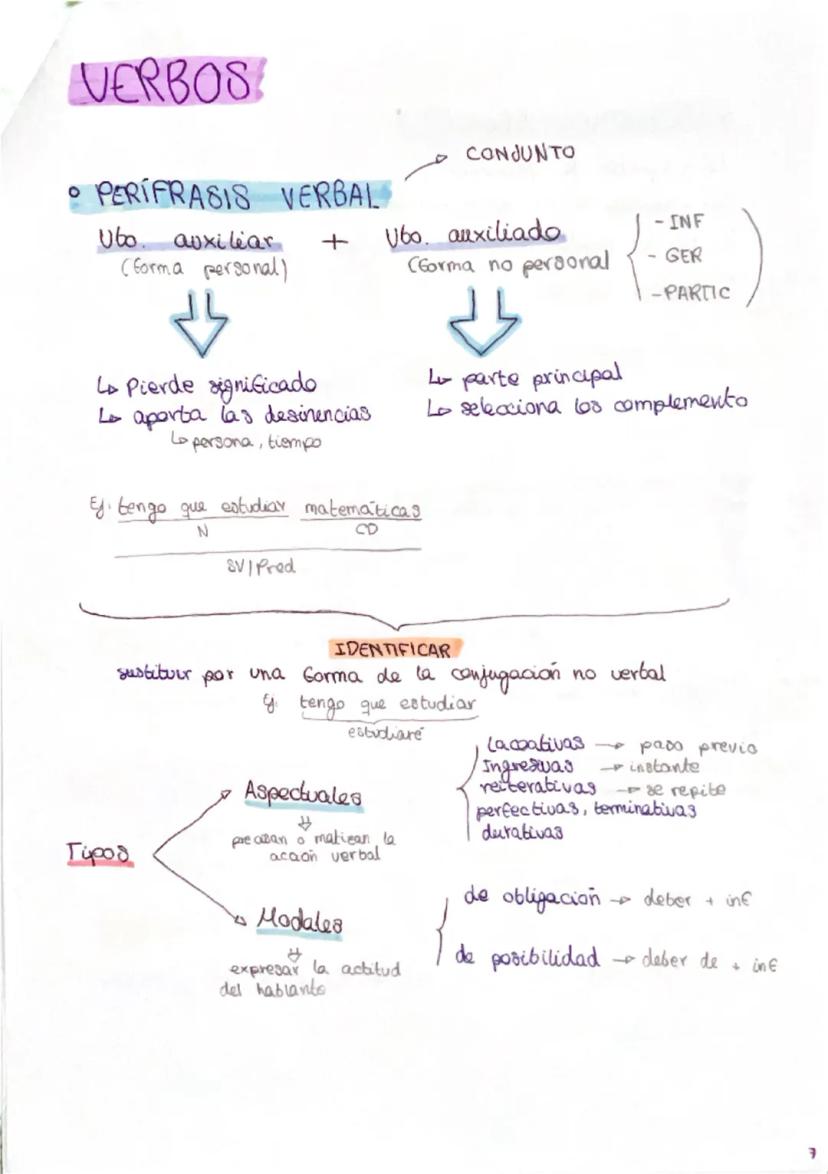 VERBOS
CONJUNTO
PERÍFRASIS VERBAL
Vbo. auxiliar + Vbo. auxiliado
(forma personal) (forma no personal
- INF
- GER
- PARTIC )
↳ Pierde significado
↳ aporta las desinencias
↳ persona, tiempo
↳ parte principal
↳ selecciona los complemento
Ej. tengo que estudiar matemáticas
N CD
SV/Pred
IDENTIFICAR
sustituir por una forma de la conjugación no verbal
Ej. tengo que estudiar
estudiaré
Tipos
Aspectuales
precisan o matizan la
acción verbal
→ paso previo
Ingresivas → instante
reiterativas → se repite
perfectivas, terminativas
durativas
Modales
expresar la actitud
del hablante
de obligación → deber + inf
de posibilidad → deber de + inf
7